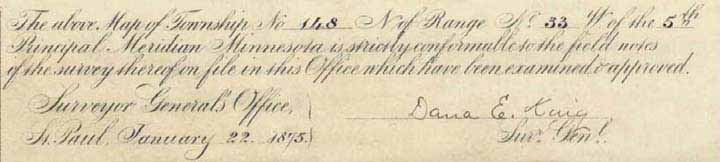 The above Map of Township No 148 N. of Range No. 33 W. of the 5th
Principal Meridian Minnesota is strictly conformable to the field notes
of the survey thereof on file in this Office which have been examined & approved.
Surveyor General's Office,
Dana E. King
St. Paul, January 22. 1875.
Surr. Genl.